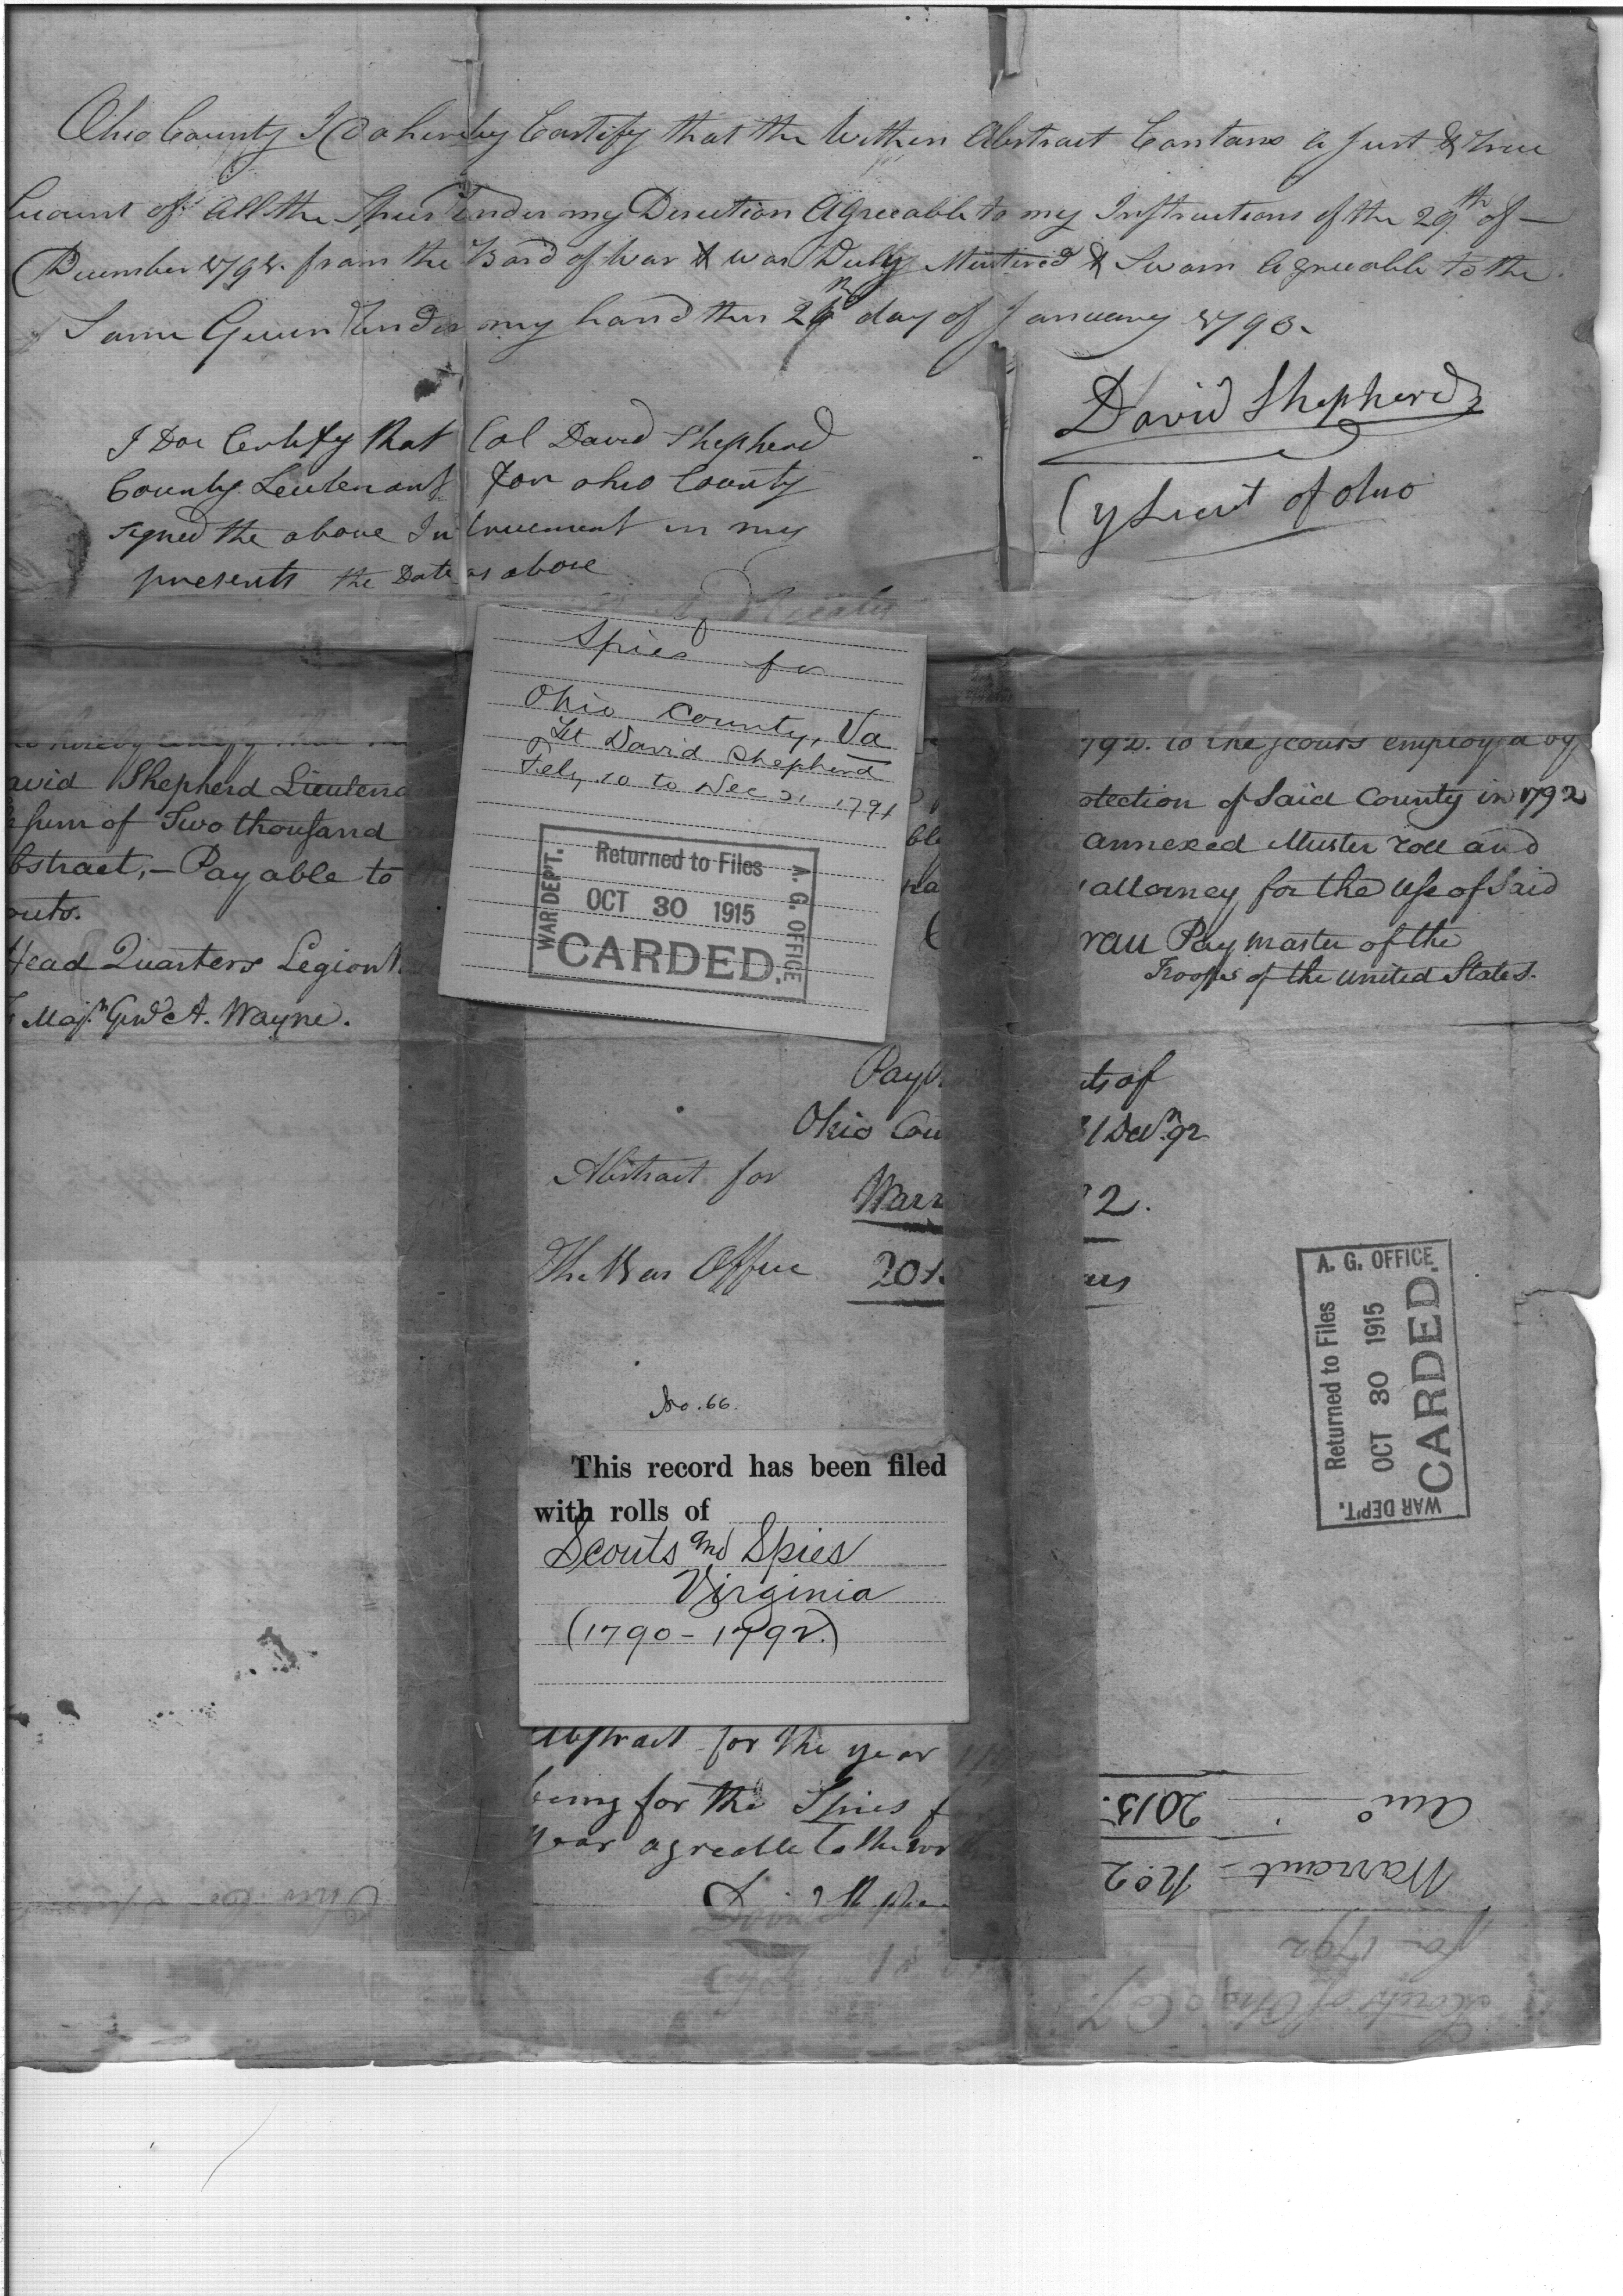 Ohio County I Do hereby Certify that the Within Abstract Contans a Just & true
Acount of all the Spies Under my Direction Agreeable to my Instructions of the 29th of
December 1791. from the Board of War & was Duly Mustered & Sworn Agreeable to the
Same Given Under my hand this day of January 1793.
David Shepherd
Cy Lieut of Ohio
I Doe Certify that Col David Shepherd
County Leutenant for ohio County
signed the above Instrument in my
presents the Date as above
Spies for
Ohio County, Va
Lt David Shepherd
Feby 10 to Dec 31 1791
WAR DEPT. A. G. OFFICE
Returned to Files
OCT 30 1915
CARDED.
hereby certify that 792. to the scouts employed by
avid Shepherd Lieutena otection of Said County in 1792
sum of Two thousand annexed Muster roll and
bstract,— Payable to attorney for the Use of Said
outs. rau Paymaster of the
Troops of the United States.
Head Quarters Legion
Majr. Genl. A. Wayne.
Pay ts of
Ohio Cou 31 Decr. 92
Abstract for Warr 2.
The War Office 201 ars
No. 66.
A. G. OFFICE
Returned to Files
OCT 30 1915
CARDED.
WAR DEPT.
This record has been filed
with rolls of
Scouts and Spies
Virginia
(1790 - 1792.)
Abstract for the year
being for the Spies f
year agreeable to the
David Shephe
Scouts of Ohio Co
for 1792
Warrant - No. 2
2015